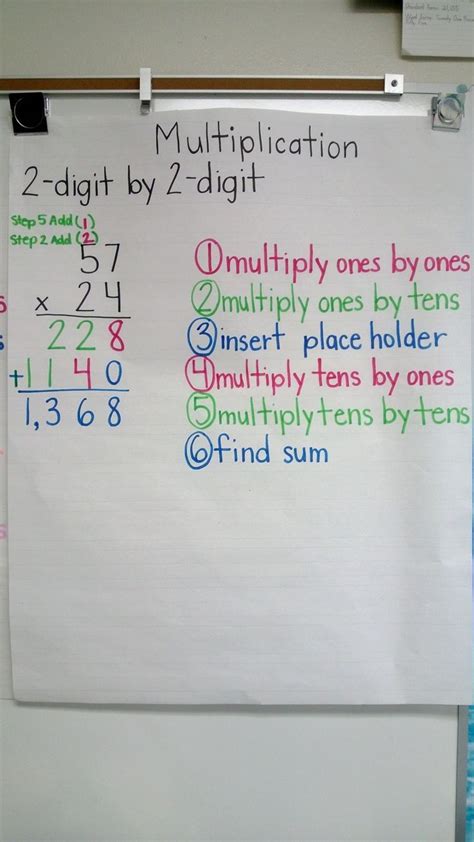 Multiplication
2-digit by 2-digit
Step 5 Add (1)
Step 2 Add (2)
57
x 24
228
+1140
1,368
① multiply ones by ones
② multiply ones by tens
③ insert place holder
④ multiply tens by ones
⑤ multiply tens by tens
⑥ find sum